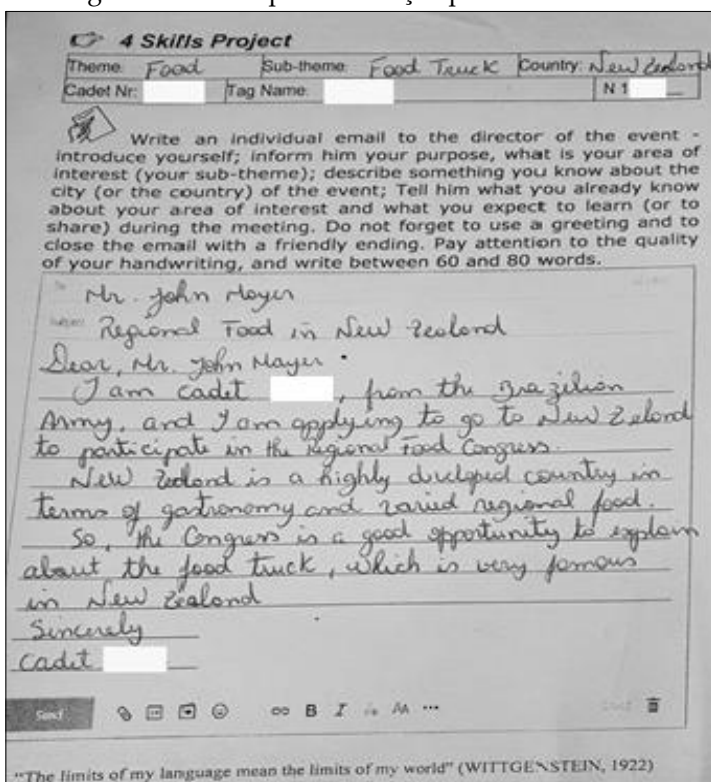 4 Skills Project
Theme: Food Sub-theme: Food Truck Country: New Zealand
Cadet Nr: Tag Name: N 1
Write an individual email to the director of the event -
introduce yourself; inform him your purpose, what is your area of
interest (your sub-theme); describe something you know about the
city (or the country) of the event; Tell him what you already know
about your area of interest and what you expect to learn (or to
share) during the meeting. Do not forget to use a greeting and to
close the email with a friendly ending. Pay attention to the quality
of your handwriting, and write between 60 and 80 words.
Mr. John Mayer
Subject Regional Food in New Zealand
Dear, Mr. John Mayer.
I am cadet , from the Brazilian
Army, and I am applying to go to New Zeland
to participate in the regional Food Congress.
New Zeland is a highly duveloped country in
terms of gastronomy and varied regional food.
So, the Congress is a good opportunity to explain
about the food truck, which is very famous
in New Zealand
Sincerely
Cadet
Send B I AA ...
"The limits of my language mean the limits of my world" (WITTGENSTEIN, 1922)